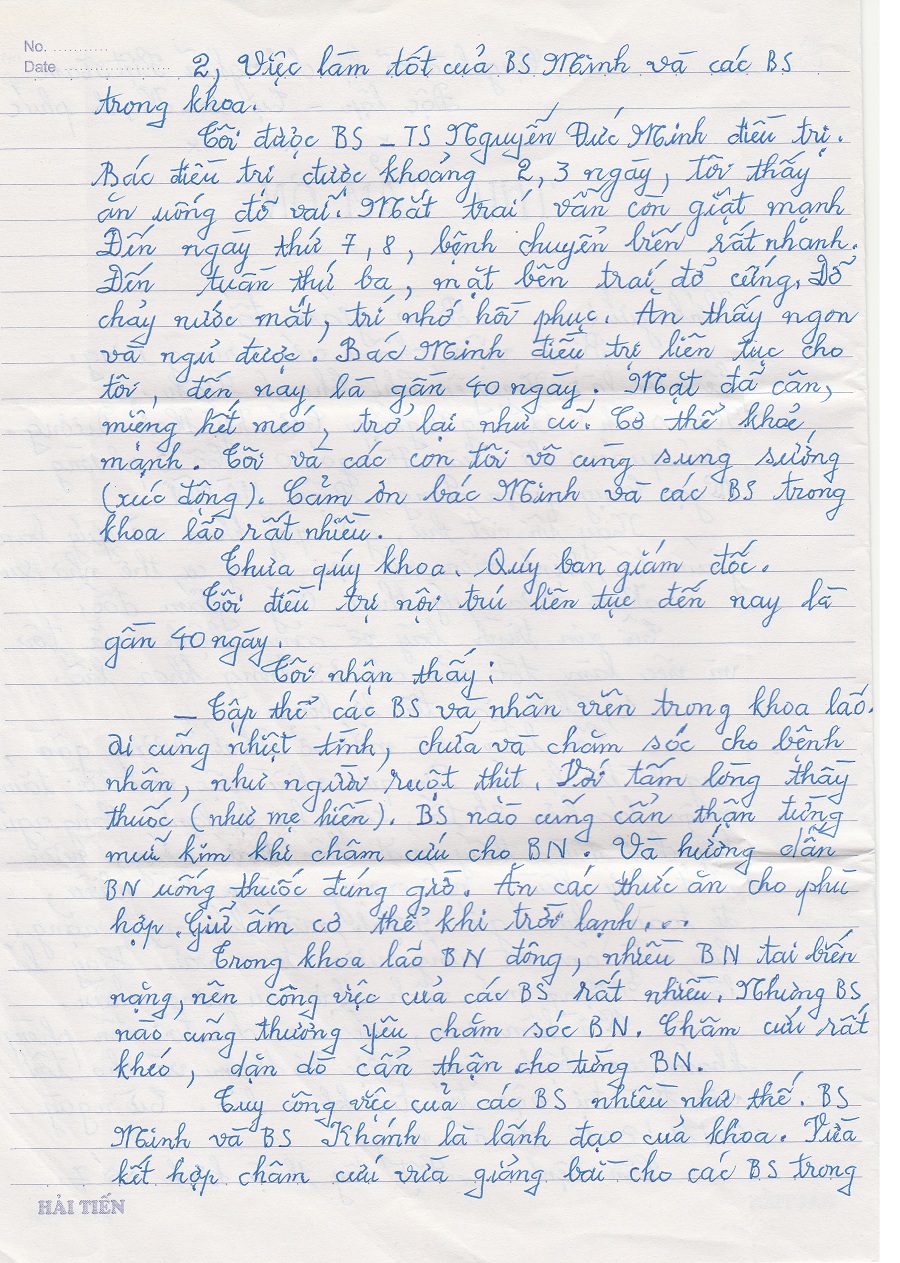 No. ...........
Date ......................
2, Việc làm tốt của BS Minh và các BS
trong khoa.
Tôi được BS - TS Nguyễn Đức Minh điều trị.
Bác điều trị được khoảng 2, 3 ngày, tôi thấy
ăn uống đỡ vãi. Mắt trái vẫn còn giật mạnh
Đến ngày thứ 7, 8, bệnh chuyển biến rất nhanh.
Đến tuần thứ ba, mặt bên trái đỡ cứng. Đỡ
chảy nước mắt, trí nhớ hồi phục. Ăn thấy ngon
và ngủ được. Bác Minh điều trị liên tục cho
tôi, đến nay là gần 40 ngày. Mặt đã cân,
miệng hết méo, trở lại như cũ. Cơ thể khỏe
mạnh. Tôi và các con tôi vô cùng sung sướng
(xúc động). Cảm ơn bác Minh và các BS trong
khoa lão rất nhiều.
Thưa quý khoa. Quý ban giám đốc.
Tôi điều trị nội trú liên tục đến nay là
gần 40 ngày.
Tôi nhận thấy:
- Tập thể các BS và nhân viên trong khoa lão.
Ai cũng nhiệt tình, chữa và chăm sóc cho bệnh
nhân, như người ruột thịt. Với tấm lòng thầy
thuốc (như mẹ hiền). BS nào cũng cẩn thận từng
mũi kim khi châm cứu cho BN. Và hướng dẫn
BN uống thuốc đúng giờ. Ăn các thức ăn cho phù
hợp. Giữ ấm cơ thể khi trời lạnh...
Trong khoa lão BN đông, nhiều BN tai biến
nặng, nên công việc của các BS rất nhiều. Nhưng BS
nào cũng thương yêu chăm sóc BN. Châm cứu rất
khéo, dặn dò cẩn thận cho từng BN.
Tuy công việc của các BS nhiều như thế. BS
Minh và BS Khánh là lãnh đạo của khoa. Vừa
kết hợp châm cứu vừa giảng bài cho các BS trong
HẢI TIẾN